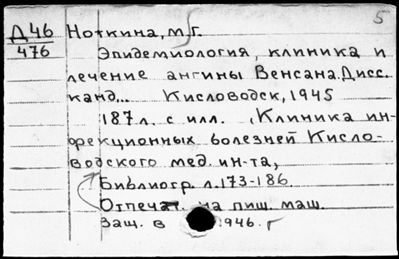 5
Д46 Ноткина, М.Г.
476 Эпидемиология, клиника и
лечение ангины Венсана. Дисс.
канд... Кисловодск, 1945
187 л. с илл. (Клиника ин-
фекционных болезней Кисло-
водского мед. ин-та,
Библиогр. л. 173-186.
Отпечат. на пиш. маш.
Защ. в 1946. г